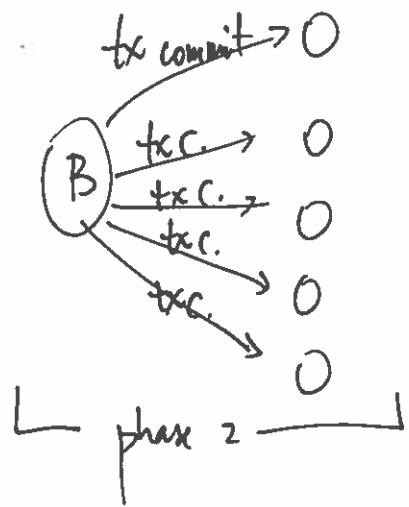 tx commit
B
tx c.
tx c.
tx c.
tx c.
phase 2